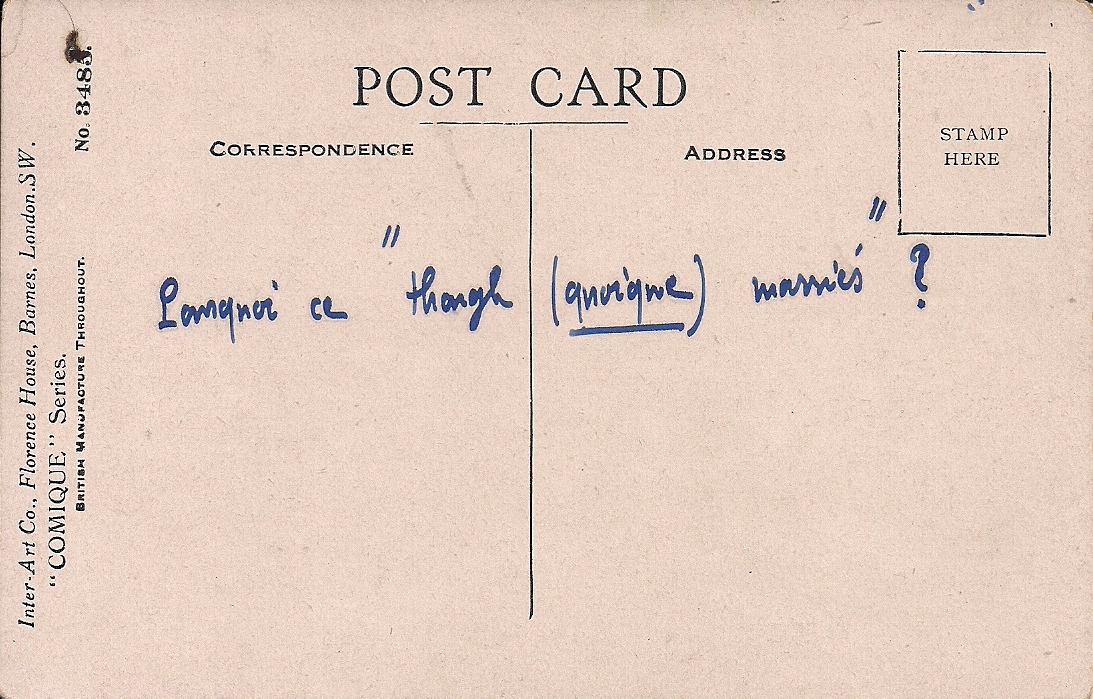 POST CARD
CORRESPONDENCE
ADDRESS
STAMP
HERE
Pourquoi ce "though (quoique) mariés" ?
Inter-Art Co., Florence House, Barnes, London.S.W.
"COMIQUE" Series.
BRITISH MANUFACTURE THROUGHOUT.
No. 3485.